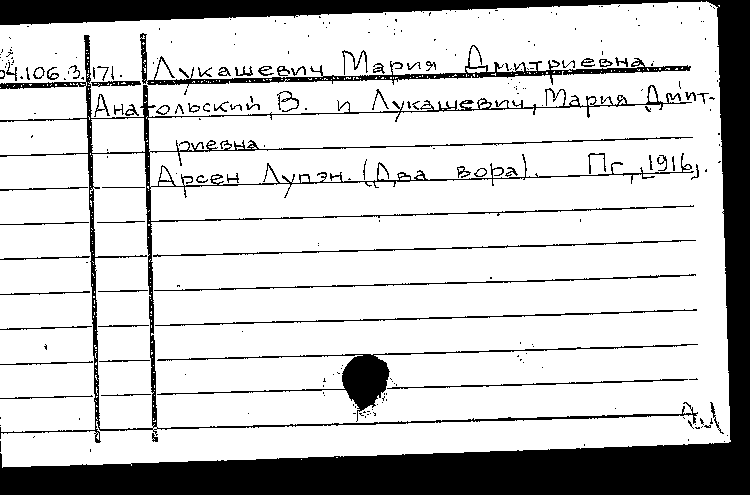 04.106.3.171. Лукашевич Мария Дмитриевна.
Анатольский, В. и Лукашевич, Мария Дмит-
риевна.
Арсен Лупэн. (Два вора). Пг., [1916].